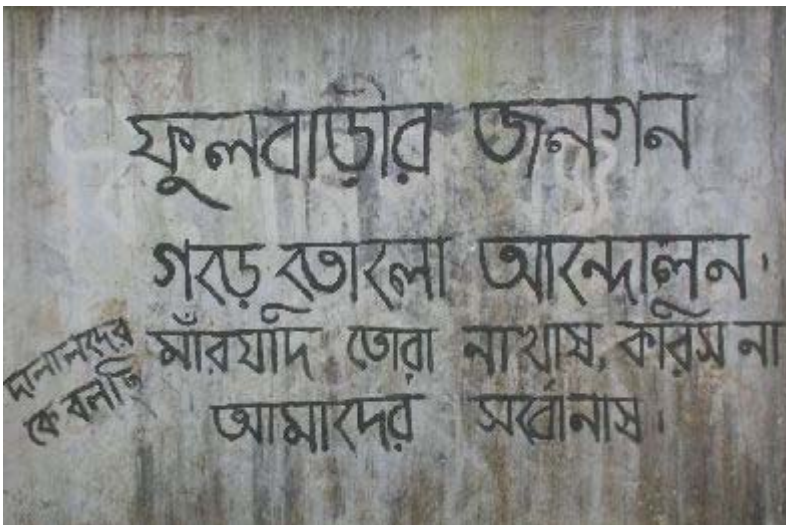 ফুলবাড়ীর জনগন
গড়ে তোলো আন্দোলন।
দালালদের
কে বলছি
মার যদি তোরা না খাষ, করিস না
আমাদের সর্বোনাষ।